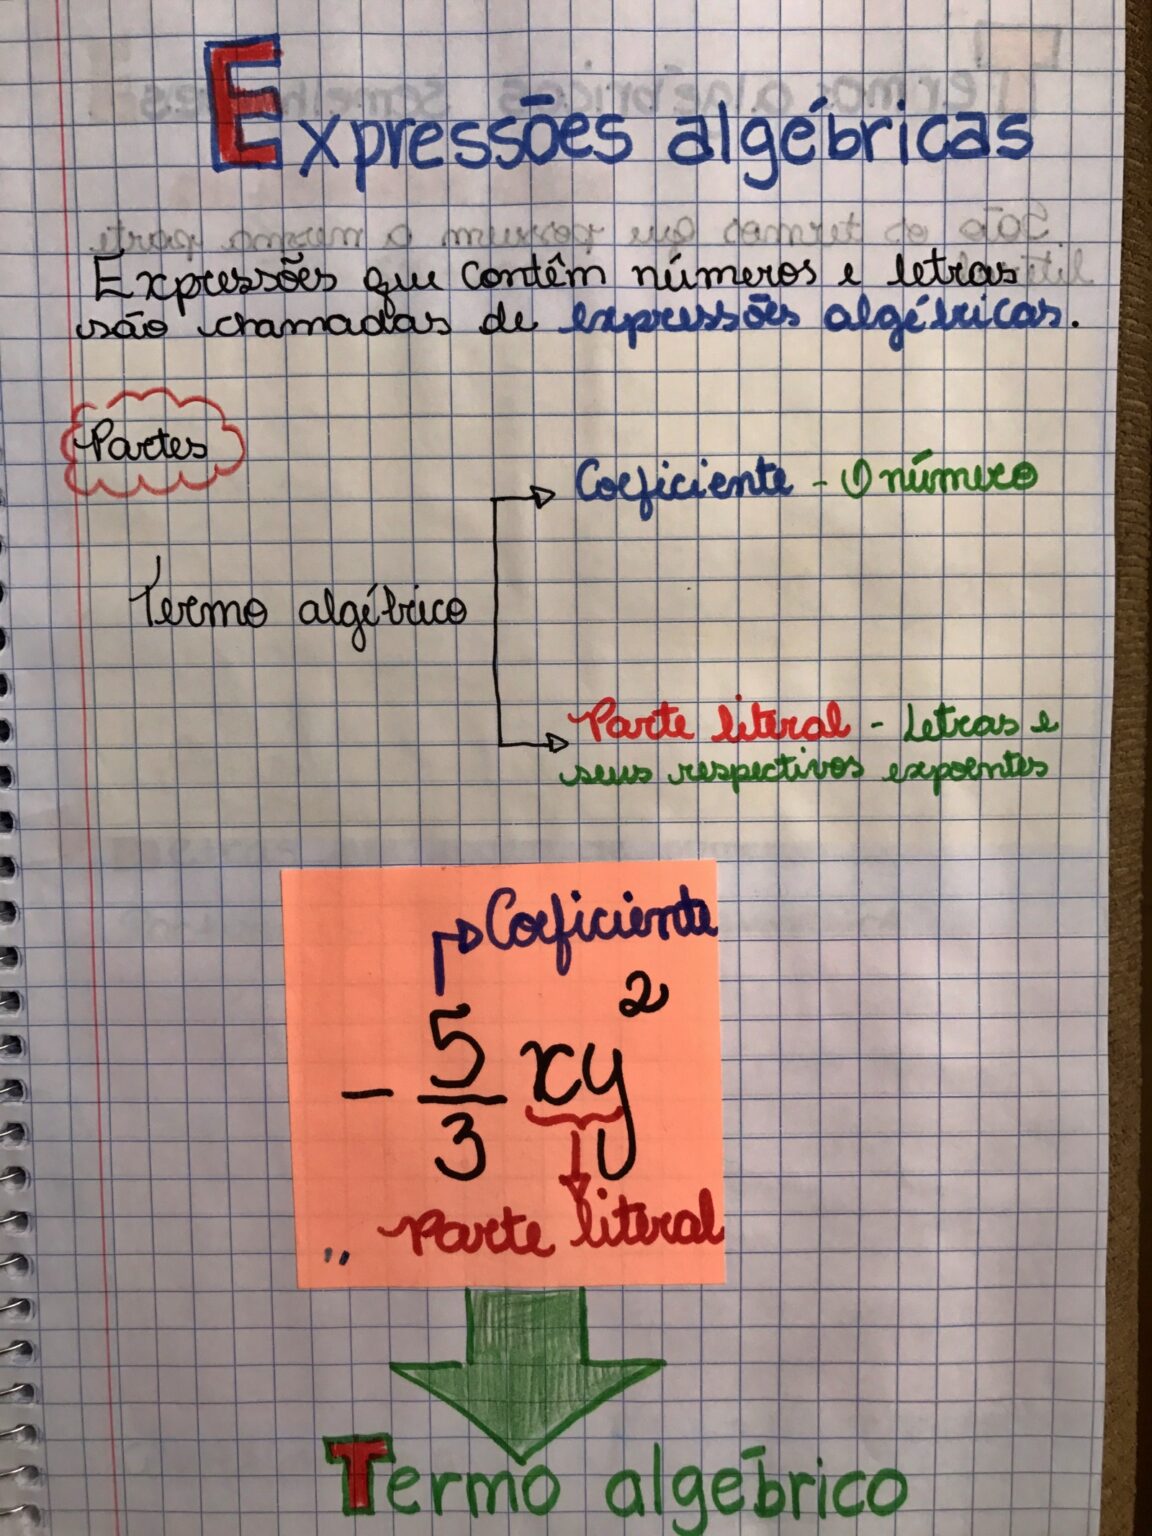 Expressões algébricas
Expressões que contêm números e letras
são chamadas de expressões algébricas.
Partes
Coeficiente - O número
Termo algébrico
Parte literal - Letras e
seus respectivos expoentes
Coeficiente
- 5/3 xy²
Parte literal
Termo algébrico